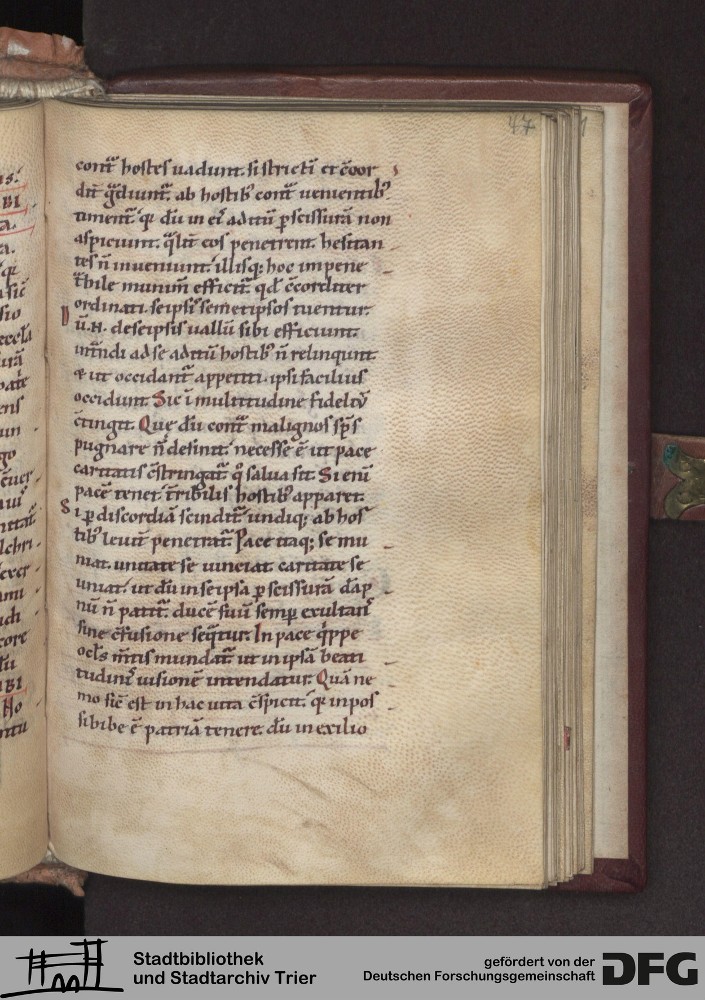 47
contͣ hostes uadunt. si stricti et c̄cor
dit̄ g̃diunt᷑. ab hostib᷒ contͣ uenientib᷒
timent᷑. qͥ dū in eiˢ aditū p̲scissurā non
aspiciunt. qͣlit̄ eos penetrent. hesitan
tes n̄ inueniunt. illisq; hoc inpene
t̄bile munim̄ efficit᷑. qd̕ c̄corditer
ordinati. seipsiˢ semetipsos tuentur.
ū.H. deseipsis uallū sibi efficiunt.
intͣndi ad se aditū hostib᷒ n̄ relinqunt.
ut occidant᷑ appetiti. ipsi facilius
occidunt. Sic ī multitudine fideliū
c̄tingit. Que dū contͣ malignos sp̄s
pugnare n̄ desinit. necesse ē ut pace
caritatis c̄stringat᷑ qͦ salua sit. Si eni
pacē tenet. t̄ribilis hostib᷒ apparet.
Si p̲ discordiā scindit᷑ undiq; ab hos
tib᷒ leuit̄ penetrat᷑. Pace itaq; se mu
niat. unitate se uinciat caritate se
uniat. ut dū in seipsa p̲ scissurā dāp
nū n̄ patit᷑. ducē suū semp̲ exultanˢ
sine c̄fusione seq̄tur. In pace qͥppe
ocl̄s m̄tis mundat᷑ ut in ipsā beati
tudinˢ uisionē intendatur. Quā ne
mo sic̄ est in hac uita c̄spicit. qͥ in pos
sibile ē patriā tenere. dū in exilio
Stadtbibliothek
und Stadtarchiv Trier
gefördert von der
Deutschen Forschungsgemeinschaft
DFG